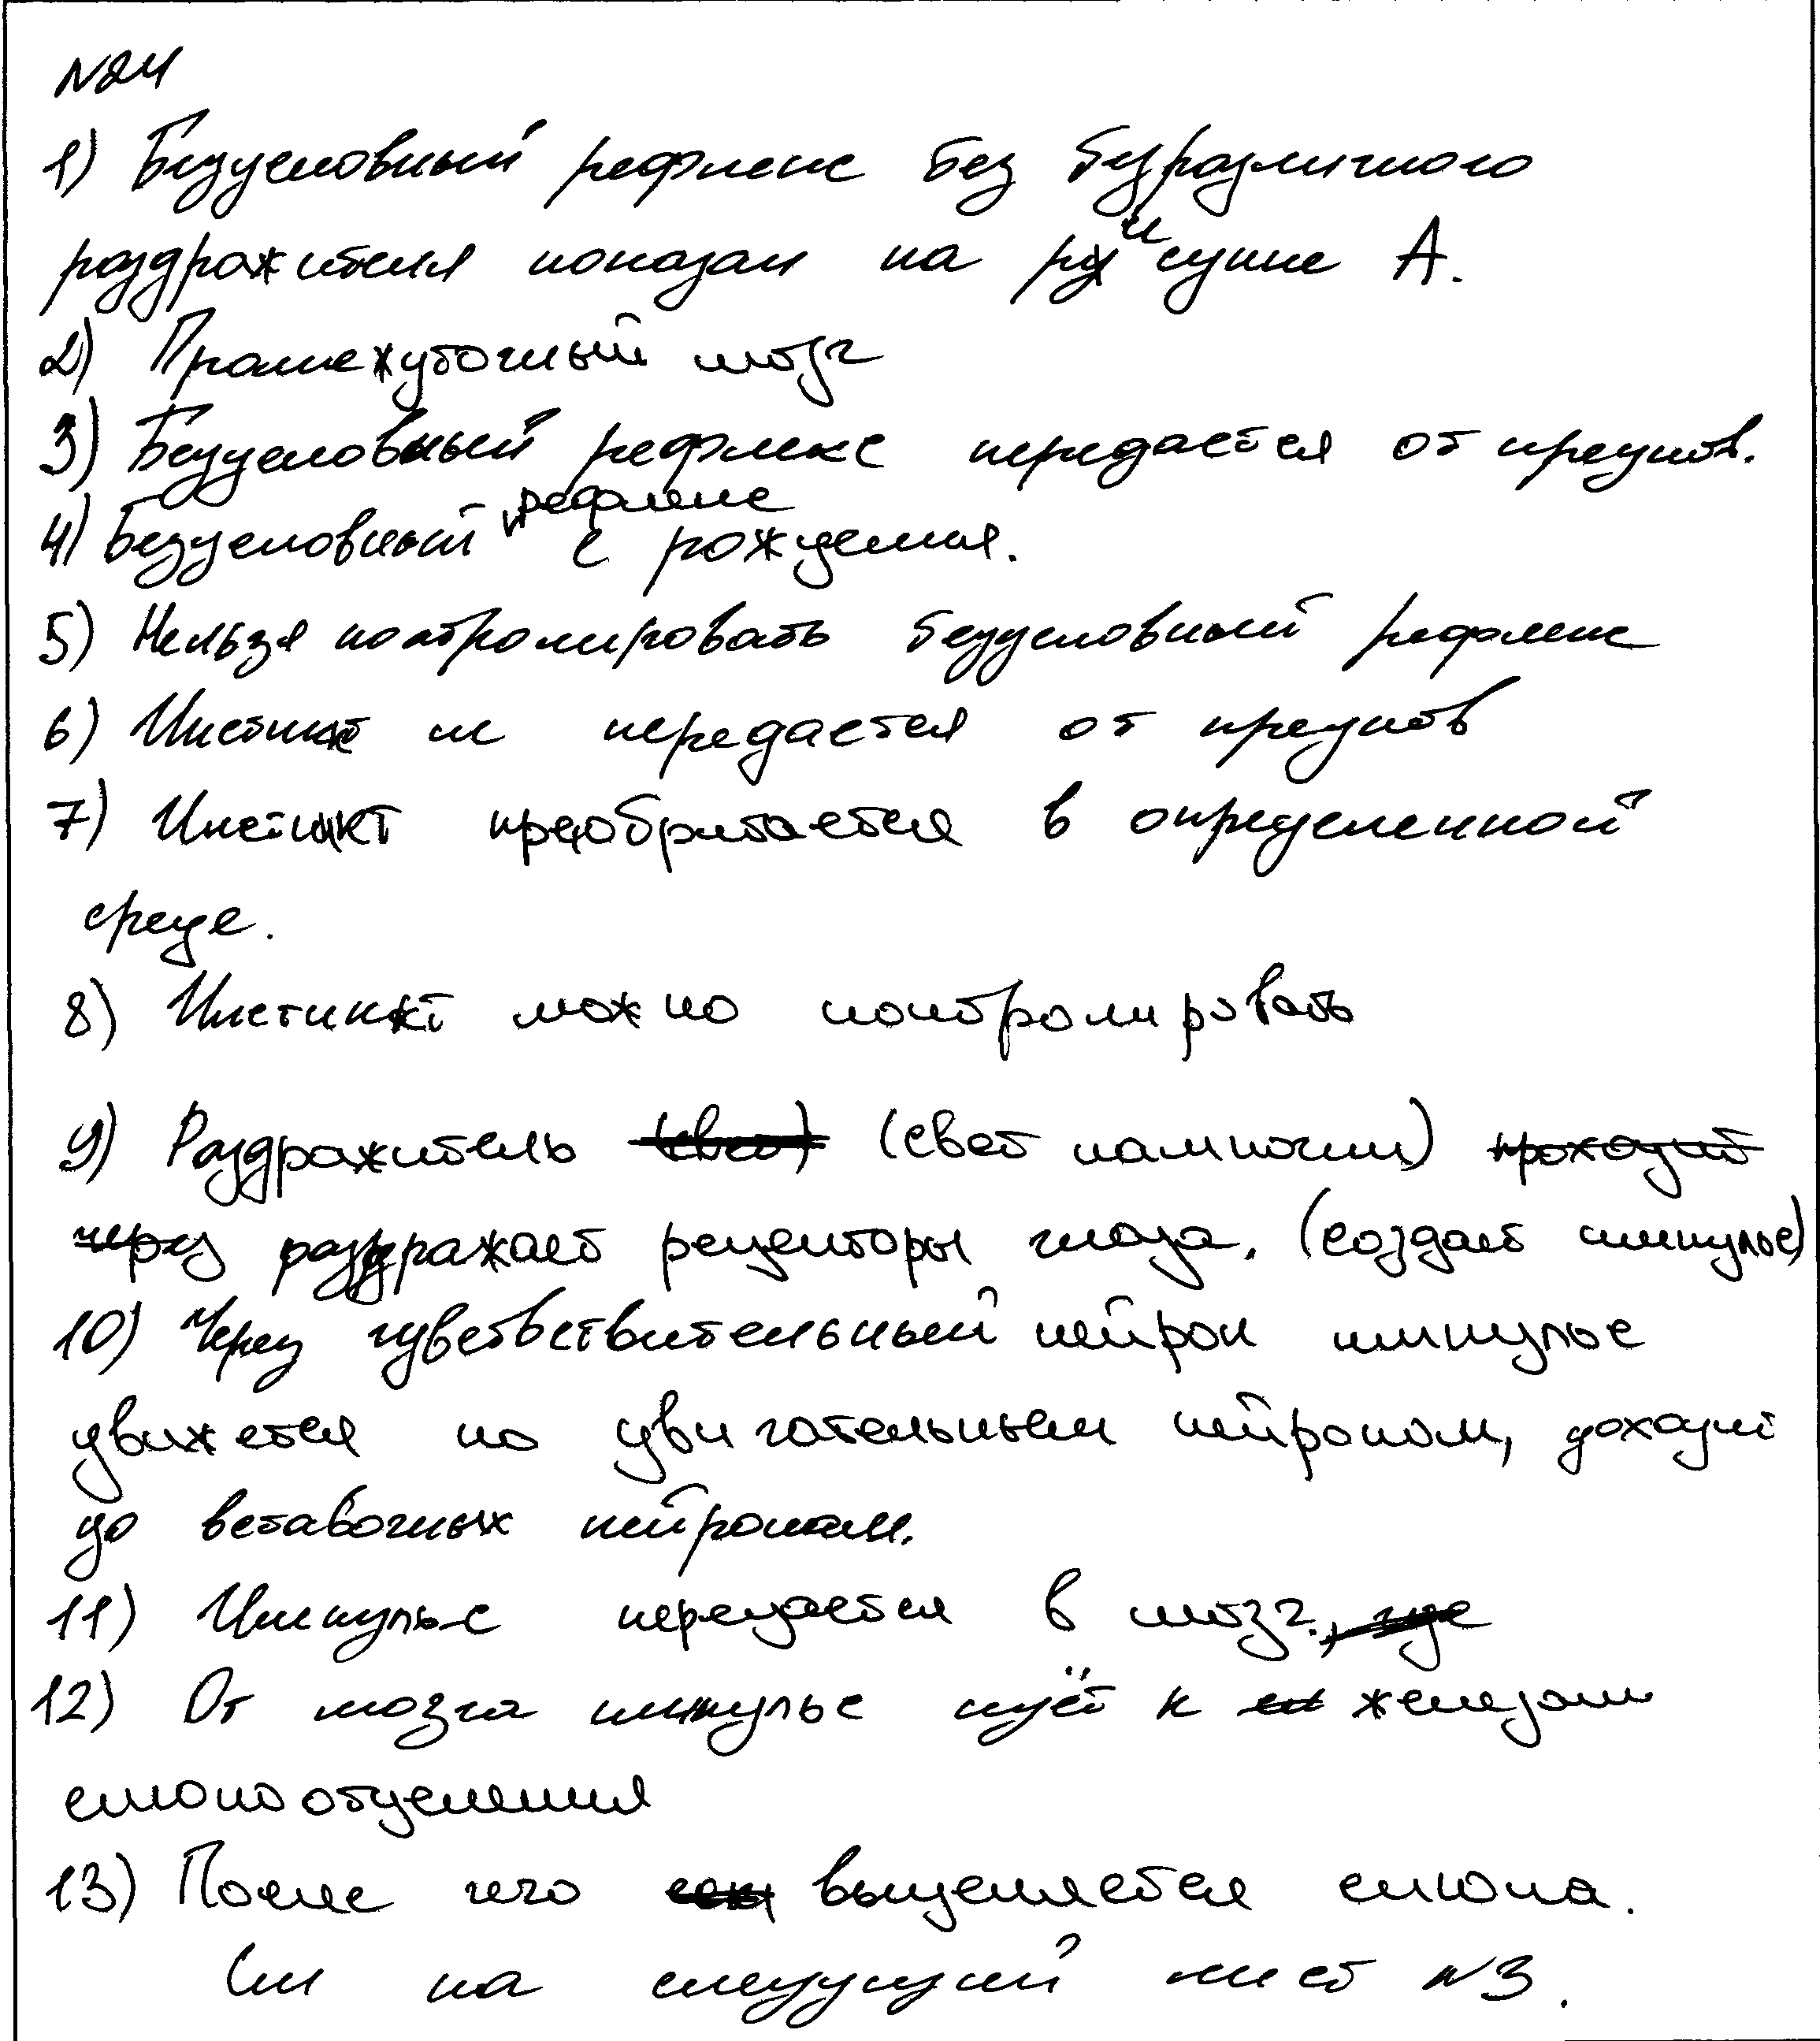 №24
1) Безусловный рефлекс без безразличного
раздражителя показан на рисунке А.
2) Промежуточный мозг
3) Безусловный рефлекс передается от предков.
4) Безусловный рефлекс с рождения.
5) Нельзя контролировать безусловный рефлекс
6) Инстинкт не передается от предков
7) Инстинкт преобритается в определенной
среде.
8) Инстинкт можно контролировать
9) Раздражитель (свет лампочки) проходит
через раздражает рецепторы глаза. (создает импульс)
10) Через чувствствительный нейрон импульс
движется по двигательным нейроном, доходит
до вставочных нейронам.
11) Импульс передается в мозг., где
12) От мозга импульс идёт к железам
слюноотделения
13) После чего выделяется слюна.
См на следующий лист №3.